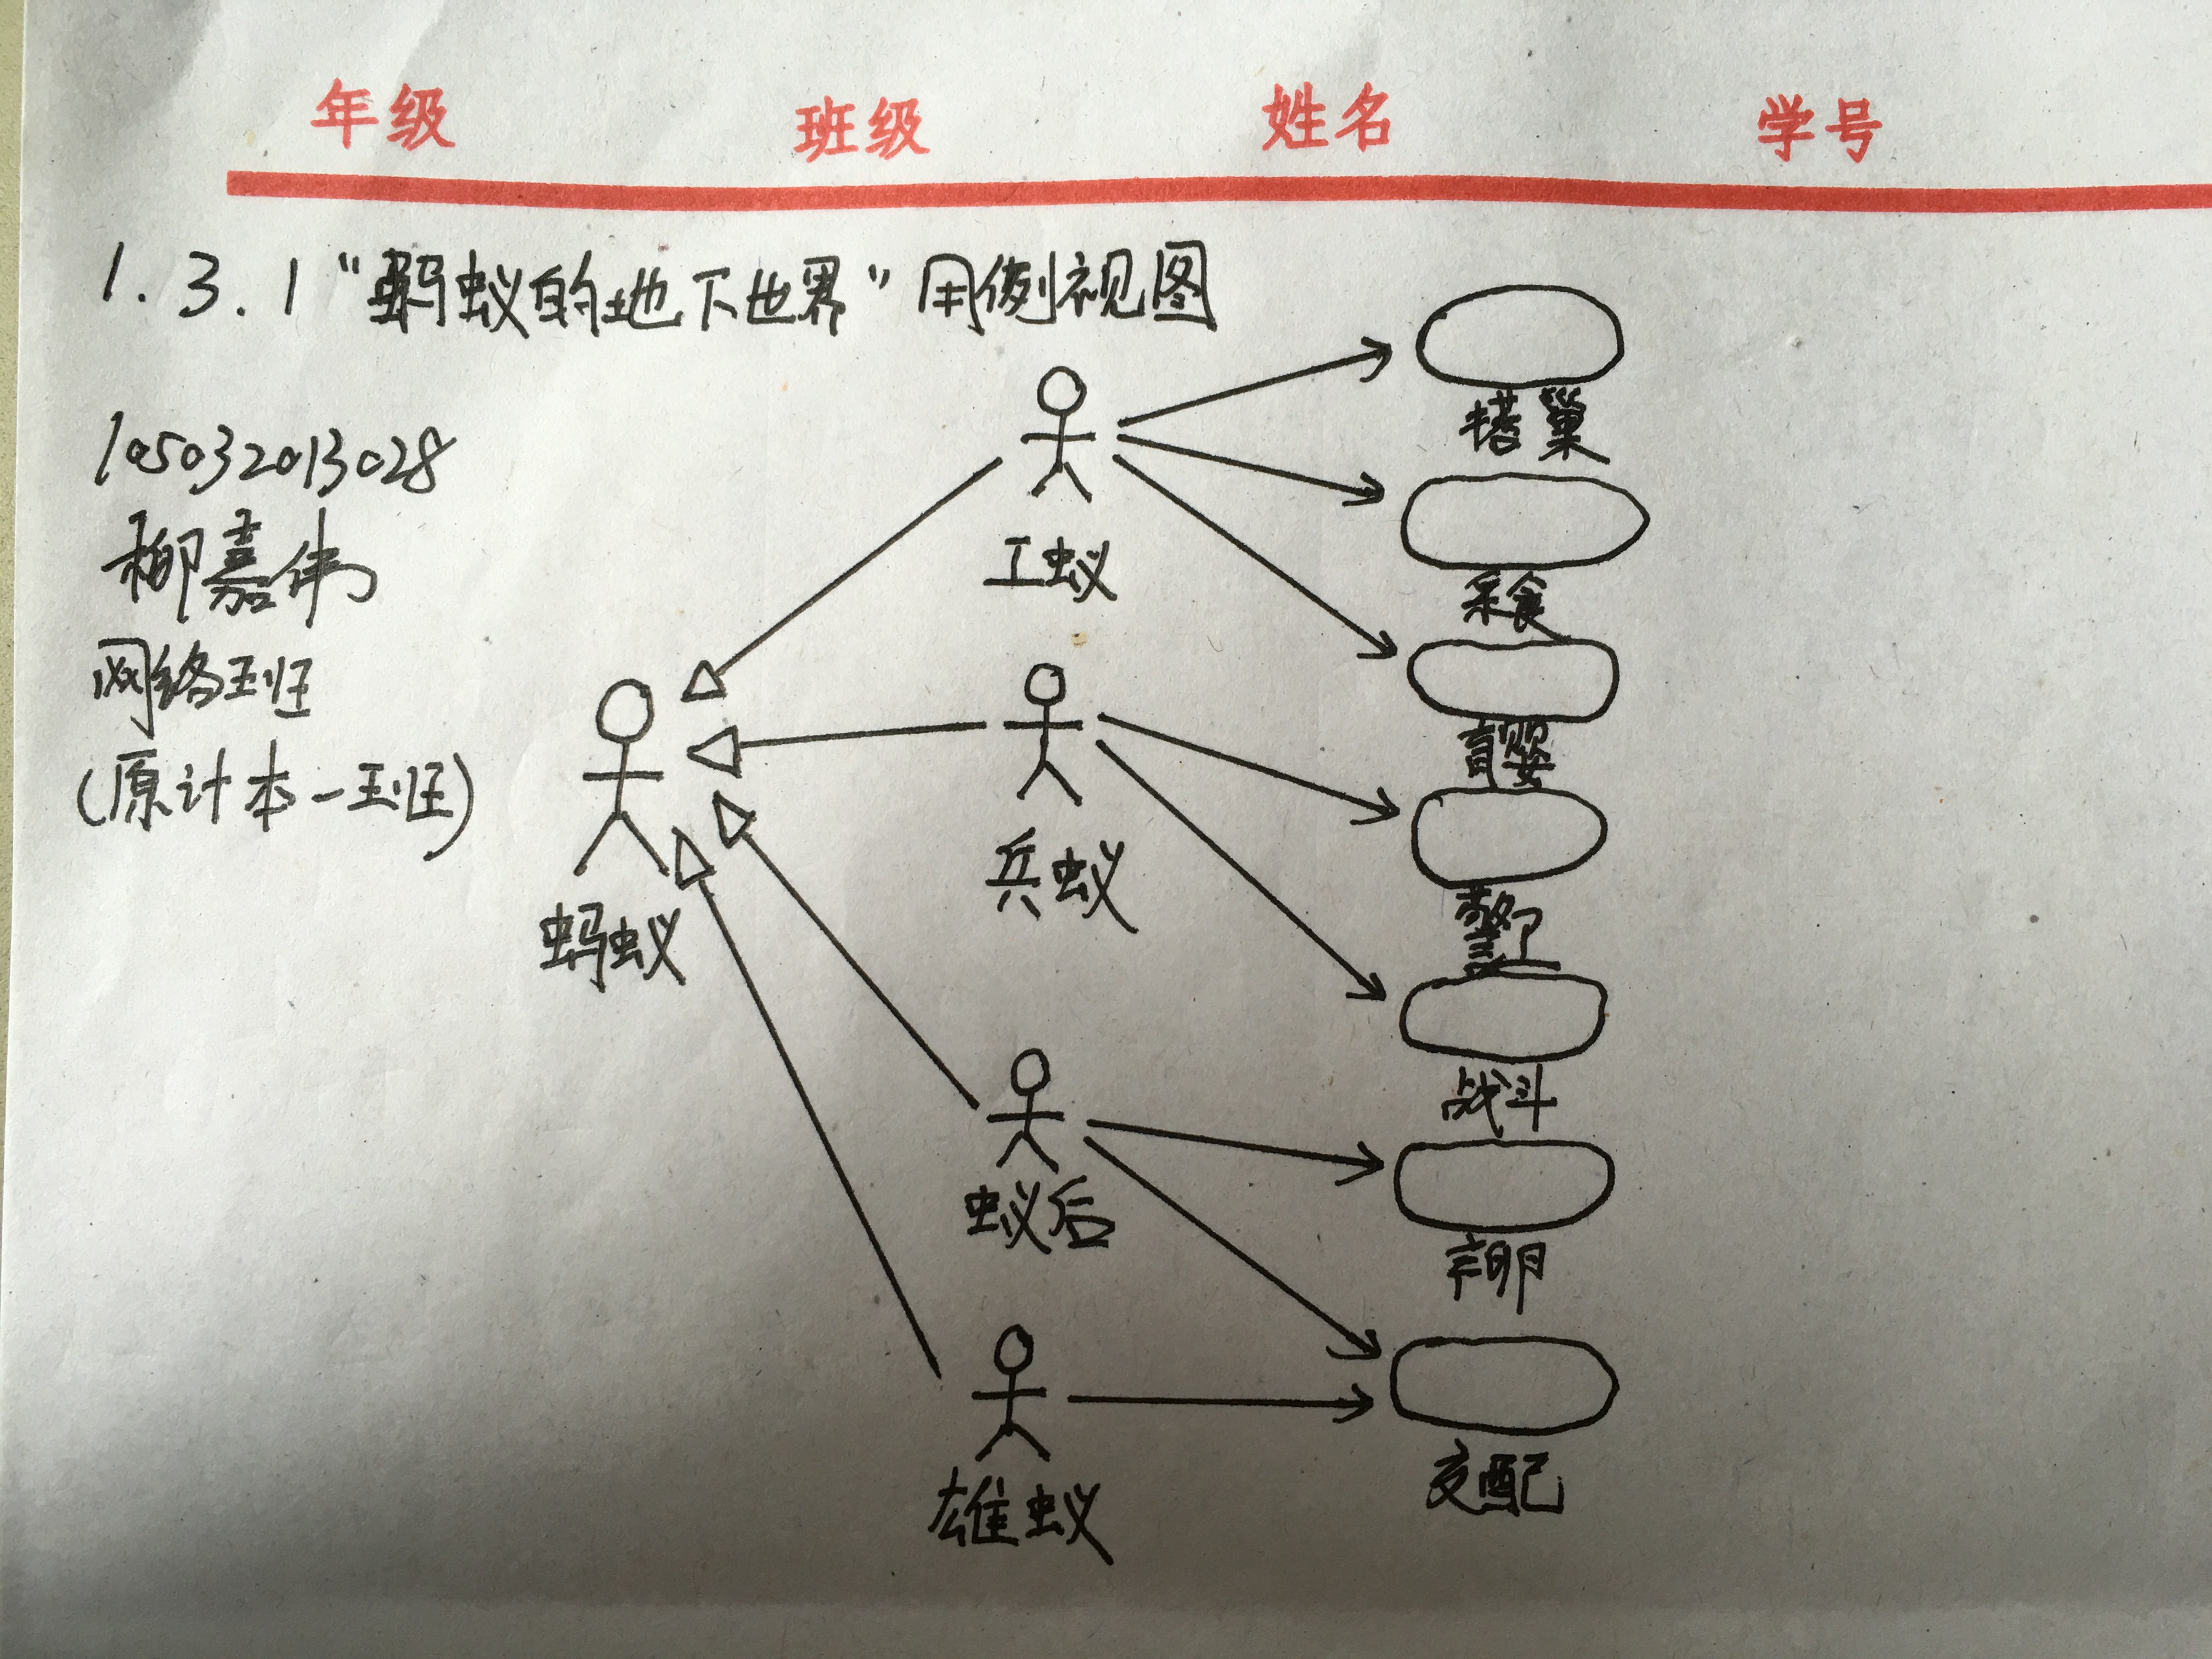 年级 班级 姓名 学号
1.3.1 “蚂蚁的地下世界”用例视图
105032013028
柳嘉伟
网络班
(原计本一班)
蚂蚁
工蚁
兵蚁
蚁后
雄蚁
搭巢
采食
育婴
警戒
战斗
产卵
交配